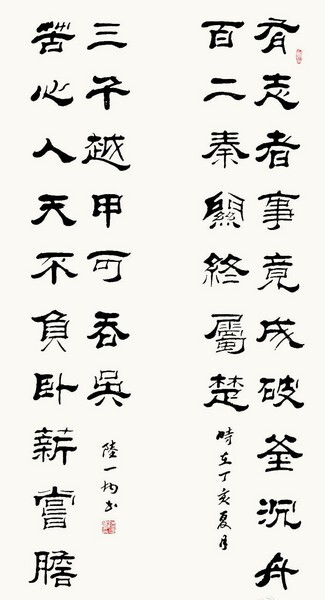 有志者事竟成破釜沉舟
百二秦關終屬楚
時在丁亥夏月
苦心人天不負臥薪嘗膽
三千越甲可吞吳
陸一書